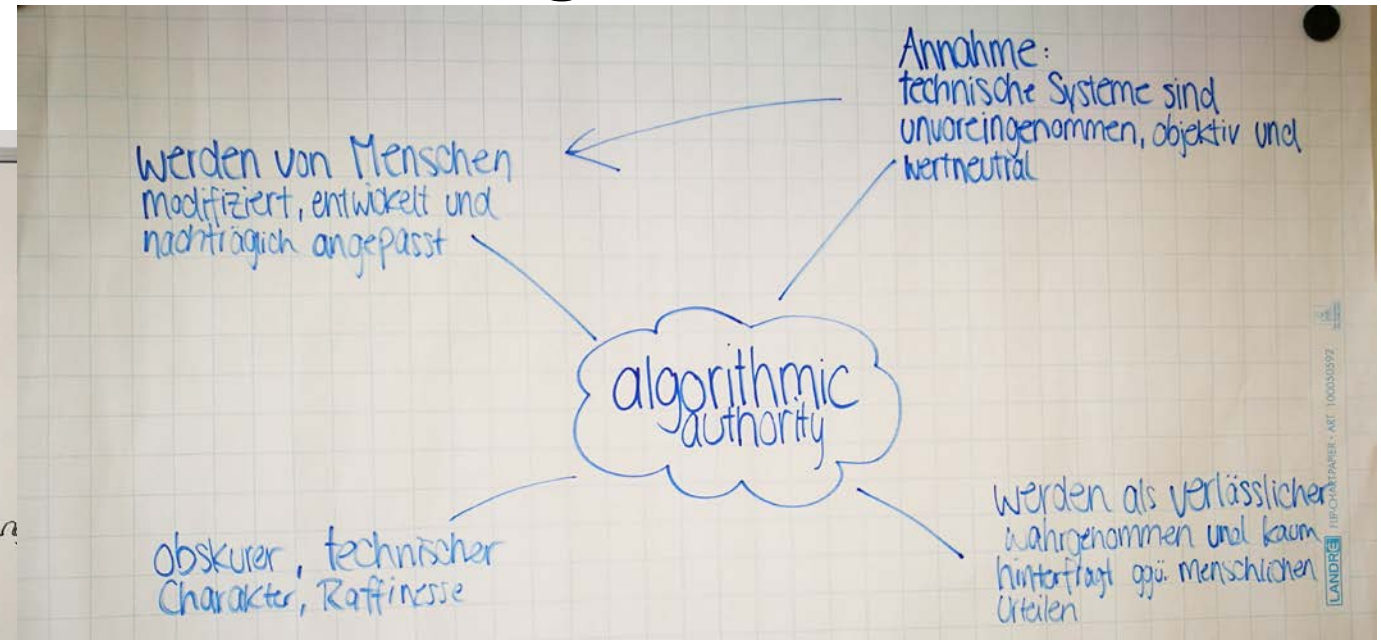 Annahme:
technische Systeme sind
unvoreingenommen, objektiv und
wertneutral
werden von Menschen
modifiziert, entwickelt und
nachträglich angepasst
algorithmic
authority
obskurer, technischer
Charakter, Raffinesse
werden als verlässlicher
wahrgenommen und kaum
hinterfragt ggü. menschlichen
Urteilen
LANDRÉ FLIPCHARTPAPIER • ART. 100050592